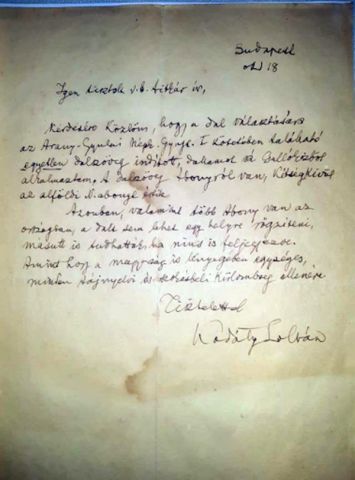 Budapest
okt 18
Igen tisztelt v.b. titkár úr,
Kérdésére közlöm, hogy a dal választására
az Arany-Gyulai Népk. Gyűjt. I kötetében található
egyetlen dalszöveg indított, dallamot
alkalmaztam. A dalszöveg Abonyról van, kétségkívül
az alföldi Abonyt
Azonban, valamint több Abony van az
országban, a dalt sem lehet egy helyre rögzíteni,
másutt is tudhatták, ha nincs is feljegyezve.
Amint hogy a magyarság is lényegében egységes,
minden tájnyelvi és különbség ellenére
Tisztelettel
Kodály Zoltán